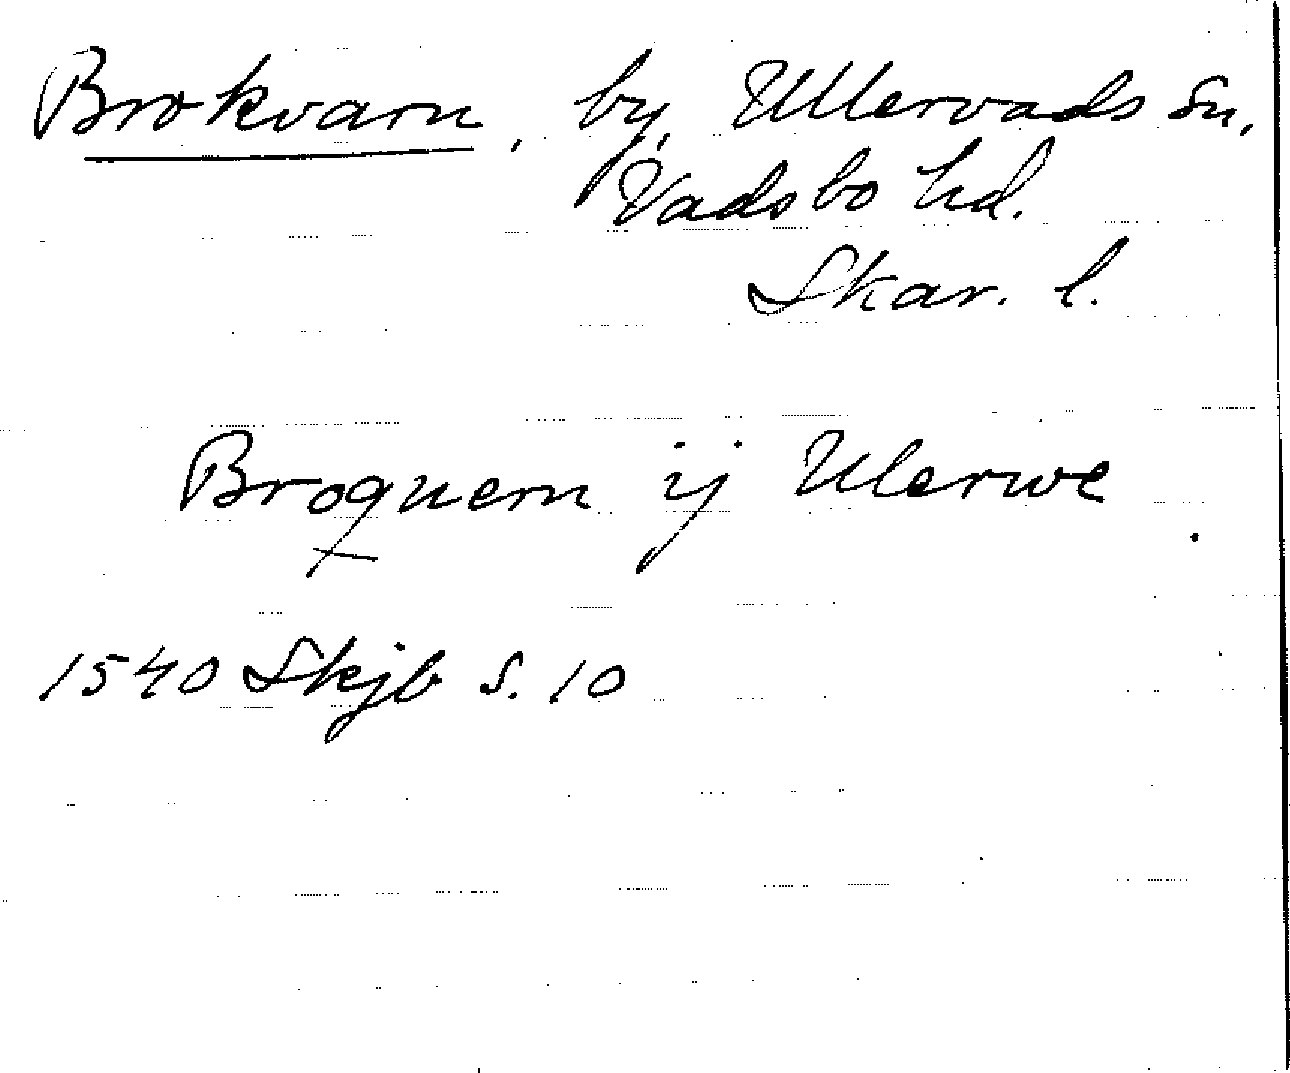 Brokvarn, by, Ullervads sn,
Vadsbo hd.
Skar. l.
Broquern ij Ulerwe
1540 Skjb s. 10